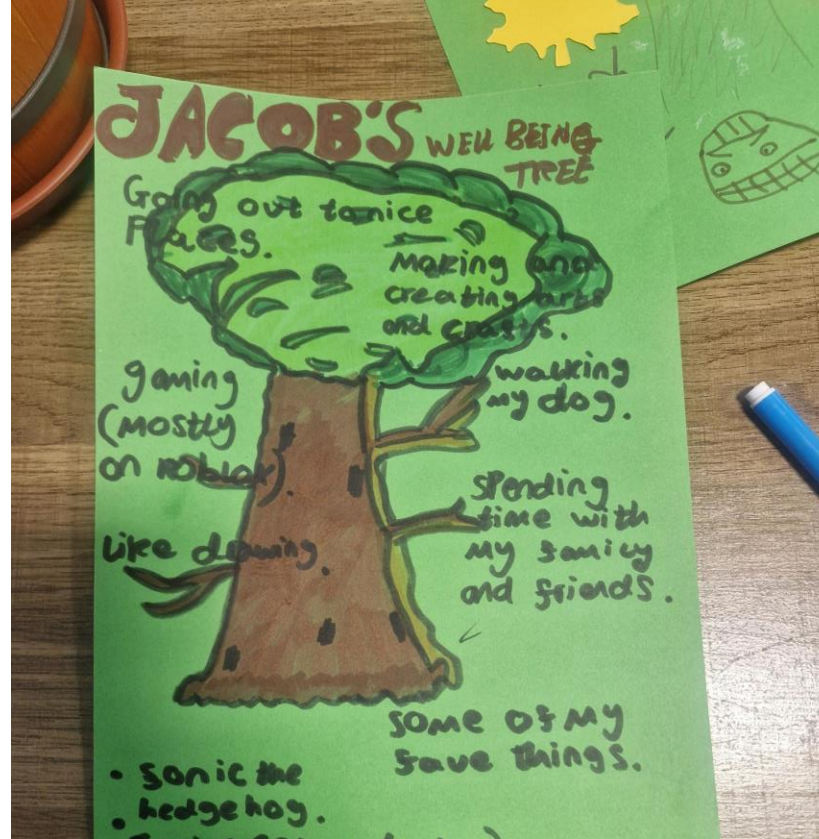 JACOB'S WELL BEING
TREE
Going out to nice
Places.
Making and
creating arts
and crafts.
gaming
(mostly
on roblox).
walking
my dog.
Like drawing.
spending
time with
my family
and friends.
some of my
fave things.
• sonic the
• hedgehog.